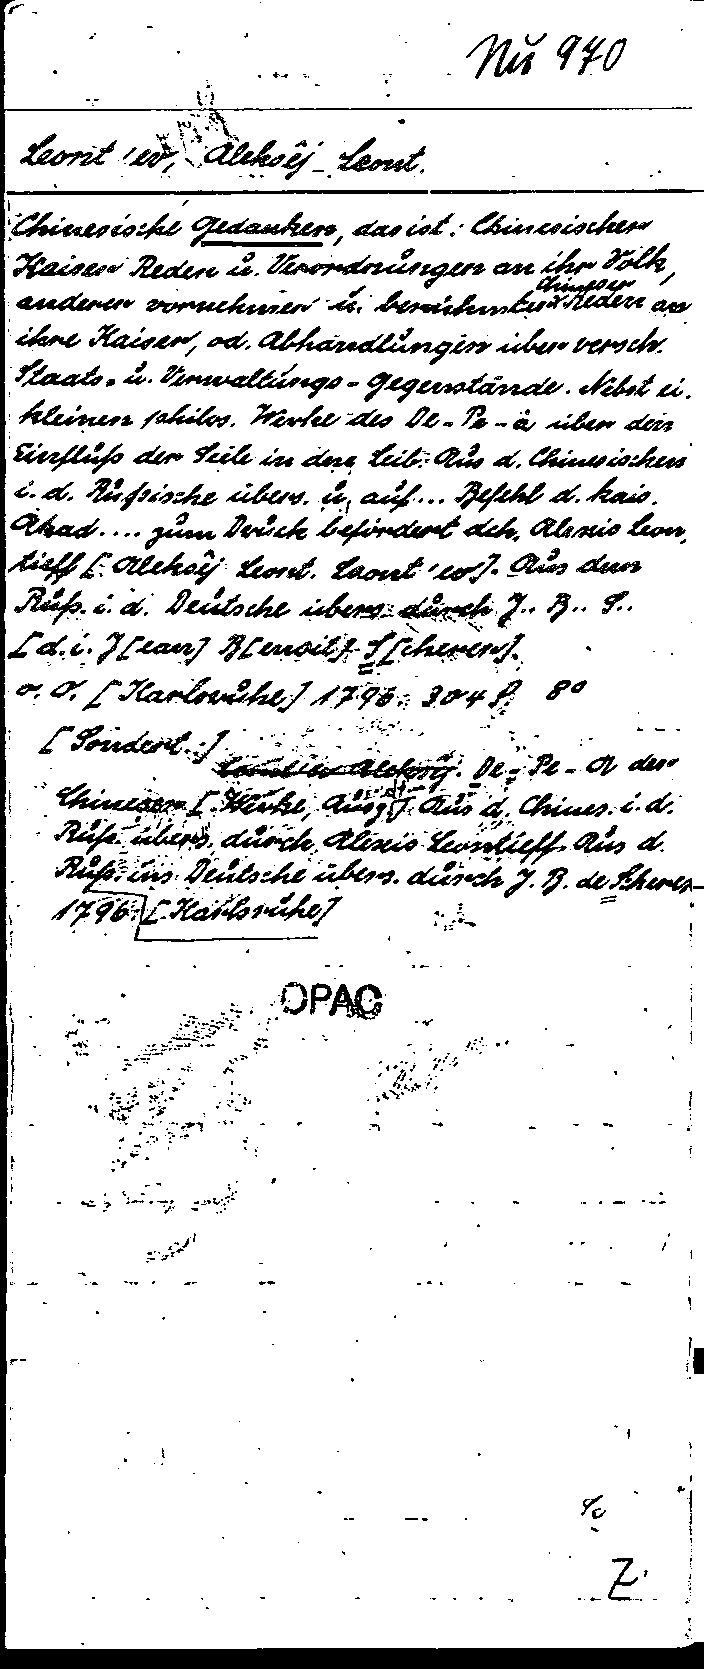 Nu 970
Leont'ev, Aleksěj Leont.
Chinesische Gedanken, das ist: Chinesischer
Kaiser Reden u. Verordnungen an ihr Volk,
anderer vornehmer u. berühmter Chineser Reden an
ihre Kaiser, od. Abhandlungen über versch.
Staats- u. Verwaltungs-Gegenstände. Nebst ei.
kleinen philos. Werke des De-Pe-a über den
Einfluß der Seele in den Leib. Aus d. Chinesischen
i. d. Rußische übers. u. auf... Befehl d. kais.
Akad.... zum Druck befördert dch. Alexis Leon,
tieff [Aleksěj Leont. Leont'ev]. Aus dem
Ruß. i. d. Deutsche übers. durch J.. B.. S..
[d. i. J[ean] B[enoit] S[cherer].
o. O. [Karlsruhe] 1796. 304 S. 8°
[Sondert.:]
De-Pe-A des
Chinesen [Werke, Ausz.] Aus d. Chines. i. d.
Ruß. übers. durch Alexis Leontieff. Aus d.
Ruß. ins Deutsche übers. durch J. B. de Scherer
1796. [Karlsruhe]
OPAC
Z